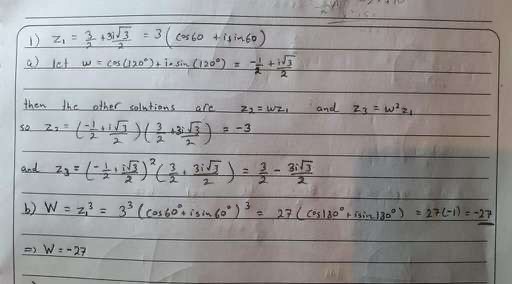 1) z₁ = 3/2 + 3i√3/2 = 3(cos60 + isin60)
a) let w = cos(120°) + isin(120°) = -1/2 + i√3/2
then the other solutions are z₂ = wz₁ and z₃ = w²z₁
so z₂ = (-1/2 + i√3/2)(3/2 + 3i√3/2) = -3
and z₃ = (-1/2 + i√3/2)²(3/2 + 3i√3/2) = 3/2 - 3i√3/2
b) W = z₁³ = 3³(cos60° + isin60°)³ = 27(cos180° + isin180°) = 27(-1) = -27
⇒ W = -27